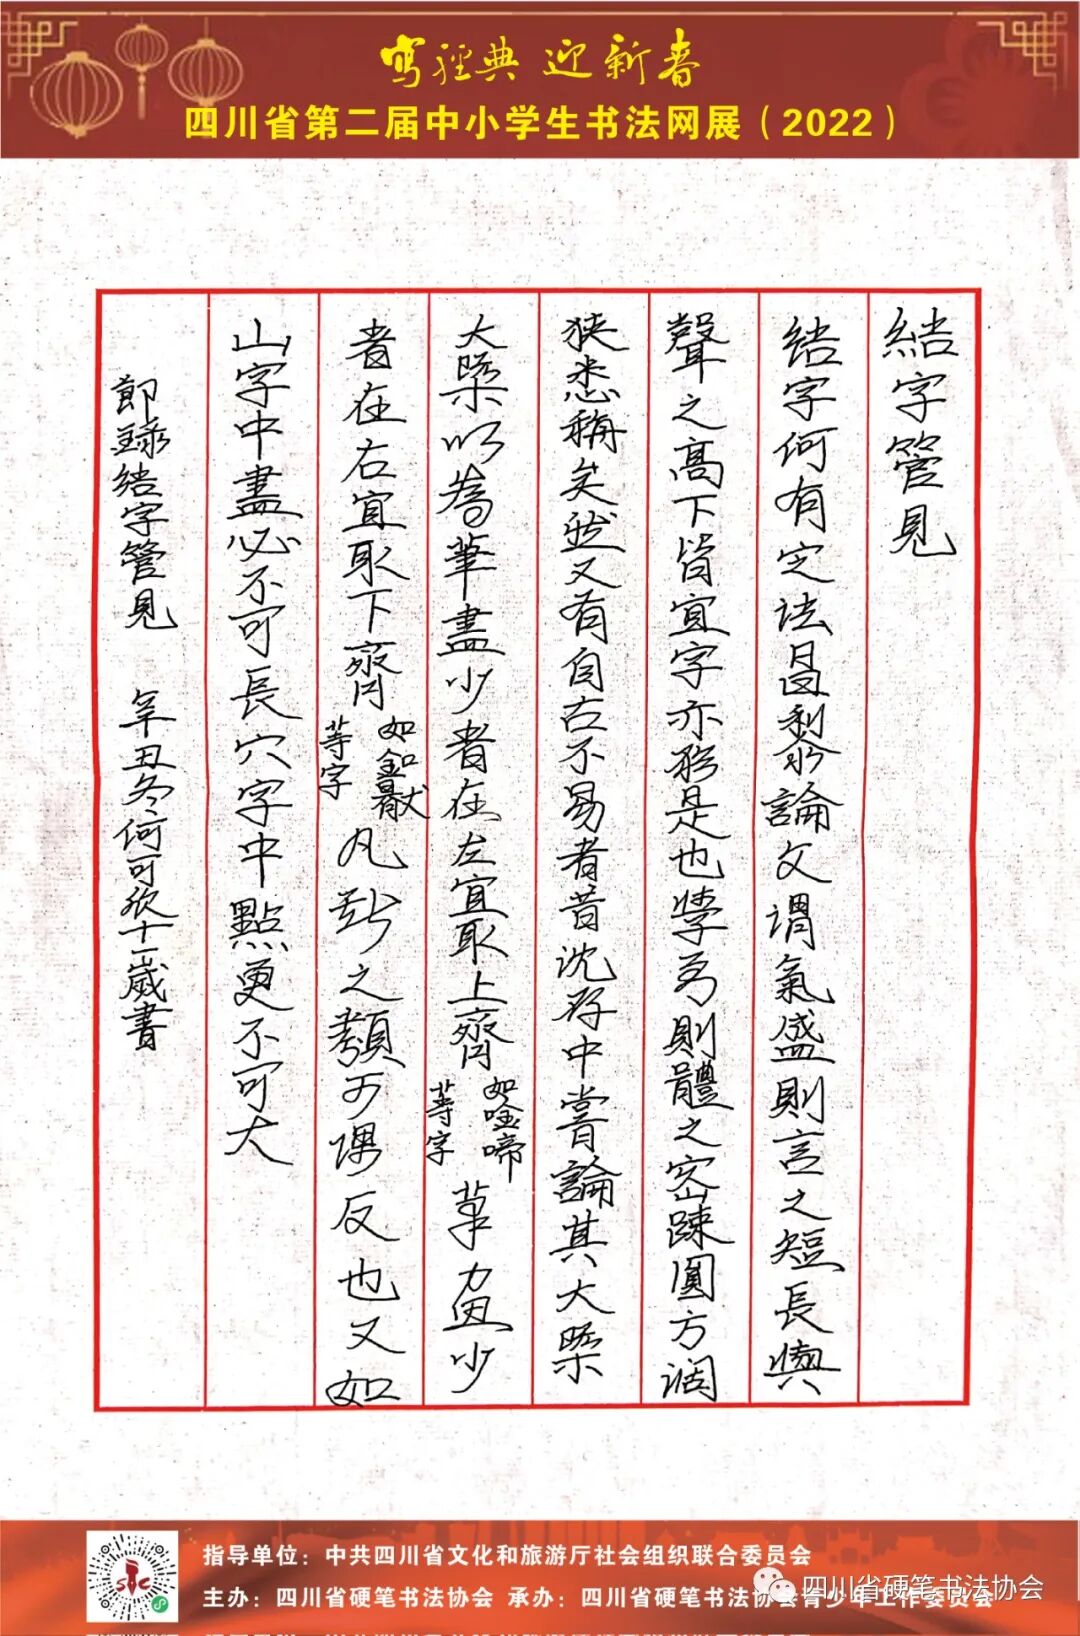 寫經典 迎新春
四川省第二届中小学生书法网展（2022）
結字管見
結字何有定法昌黎論文謂氣盛則言之短長與
聲之高下皆宜字亦猶是也學者則體之密疎圓方闊
狹悉稱矣然又有自古不易者昔沈存中嘗論其大槩
大槩以為筆畫少者在左宜取上齊如唫啼等字筆畫少
者在右宜取下齊如釦獻等字凡此之類可偶反也又如
山字中畫必不可長穴字中點更不可大
節錄結字管見 辛丑冬何可欣十一歲書
指导单位：中共四川省文化和旅游厅社会组织联合委员会
主办：四川省硬笔书法协会 承办：四川省硬笔书法协会青少年工作委员会
四川省硬笔书法协会